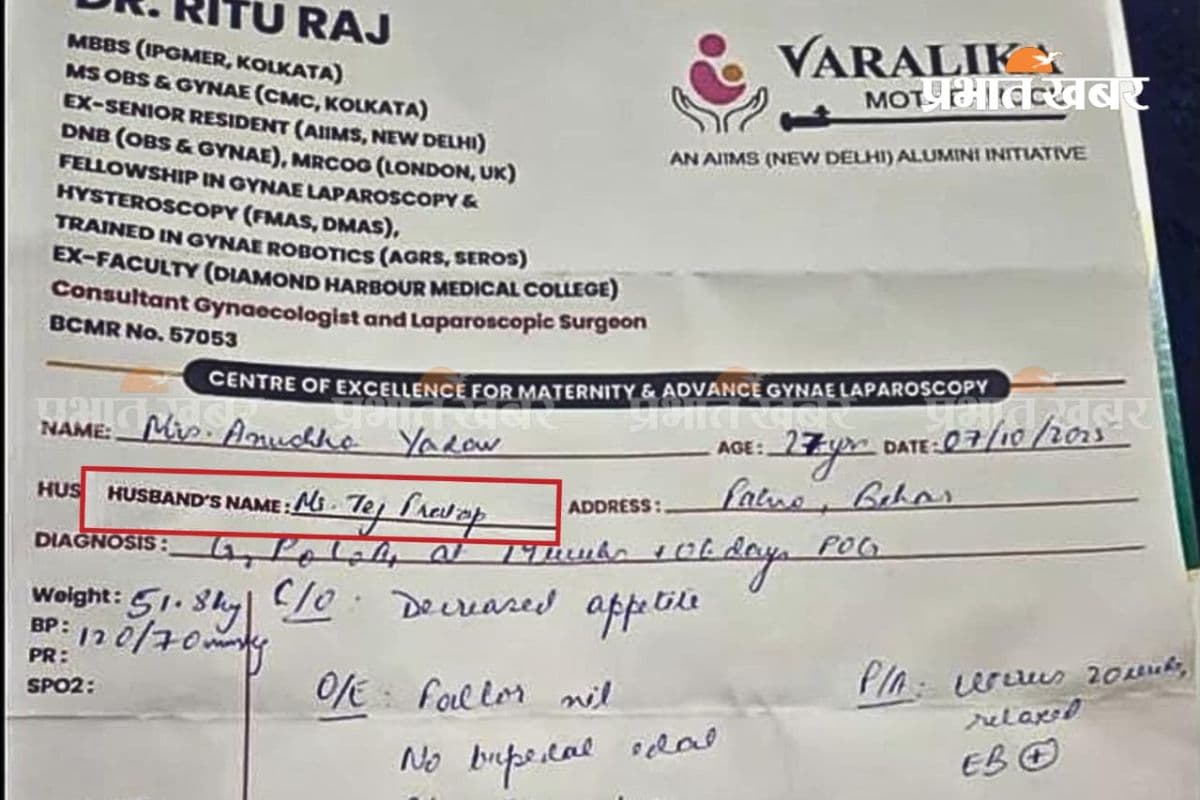 DR. RITU RAJ
MBBS (IPGMER, KOLKATA)
MS OBS & GYNAE (CMC, KOLKATA)
EX-SENIOR RESIDENT (AIIMS, NEW DELHI)
DNB (OBS & GYNAE), MRCOG (LONDON, UK)
FELLOWSHIP IN GYNAE LAPAROSCOPY &
HYSTEROSCOPY (FMAS, DMAS),
TRAINED IN GYNAE ROBOTICS (AGRS, SEROS)
EX-FACULTY (DIAMOND HARBOUR MEDICAL COLLEGE)
Consultant Gynaecologist and Laparoscopic Surgeon
BCMR No. 57053
VARALIKA
प्रभात खबर
AN AIIMS (NEW DELHI) ALUMINI INITIATIVE
CENTRE OF EXCELLENCE FOR MATERNITY & ADVANCE GYNAE LAPAROSCOPY
प्रभात खबर प्रभात खबर प्रभात खबर प्रभात खबर
NAME: Mrs. Anushka Yadav AGE: 27yrs DATE: 07/10/2025
HUS HUSBAND'S NAME: Mr. Tej Pratap ADDRESS: Patna, Bihar
DIAGNOSIS: at 19 weeks + 06 days POG
Weight: 51.8kg C/O: Decreased appetite
BP: 120/70 mmHg
PR:
SPO2:
O/E: Pallor nil
No bipedal edema
P/A: uterus 20 weeks,
relaxed